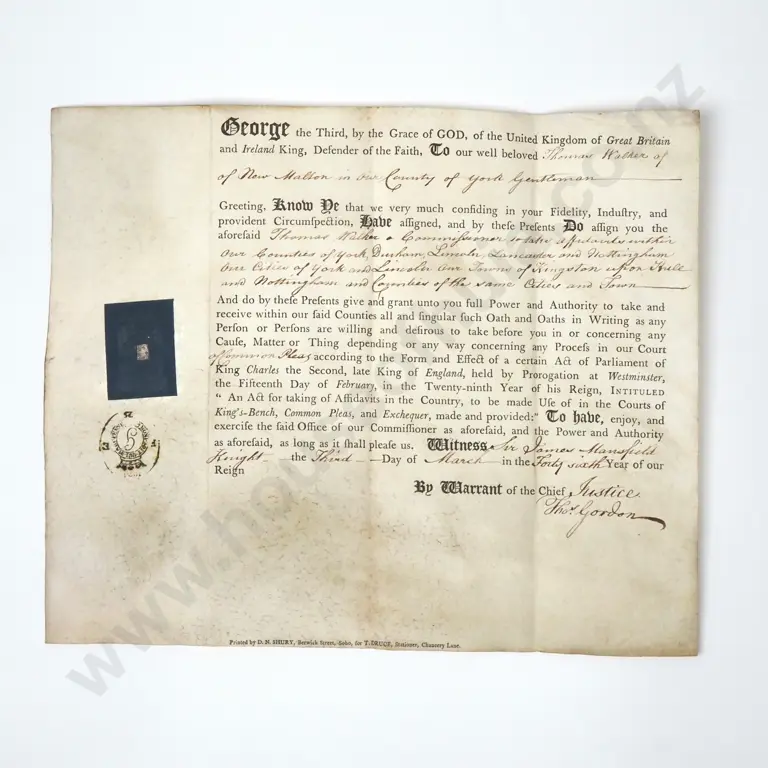 George the Third, by the Grace of GOD, of the United Kingdom of Great Britain
and Ireland King, Defender of the Faith, To our well beloved Thomas Walker of
of New Malton in our County of York Gentleman
Greeting, Know Ye that we very much confiding in your Fidelity, Induſtry, and
provident Circumſpection, Have aſſigned, and by theſe Preſents Do aſſign you the
aforeſaid Thomas Walker a Commissioner to take Affidavits within
Our Counties of York, Durham, Lincoln, Lancaster and Nottingham
Our Cities of York and Lincoln Our Towns of Kingston upon Hull
and Nottingham and Counties of the same Cities and Town
And do by theſe Preſents give and grant unto you full Power and Authority to take and
receive within our ſaid Counties all and ſingular ſuch Oath and Oaths in Writing as any
Perſon or Perſons are willing and deſirous to take before you in or concerning any
Cauſe, Matter or Thing depending or any way concerning any Proceſs in our Court
of Common Pleas according to the Form and Effect of a certain Act of Parliament of
King Charles the Second, late King of England, held by Prorogation at Westminster,
the Fifteenth Day of February, in the Twenty-ninth Year of his Reign, INTITULED
“ An Act for taking of Affidavits in the Country, to be made Uſe of in the Courts of
King's-Bench, Common Pleas, and Exchequer, made and provided:” To have, enjoy, and
exerciſe the ſaid Office of our Commiſſioner as aforeſaid, and the Power and Authority
as aforeſaid, as long as it ſhall pleaſe us. Witneſs Sir James Mansfield
Knight the Third Day of March in the Forty sixth Year of our
Reign
By Warrant of the Chief Justice
Thos. Gordon
Printed by D. N. SHURY, Berwick Street, Soho, for T. DRUCE, Stationer, Chancery Lane.